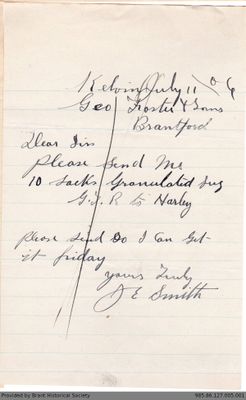 Kelvin July 11 06
Geo Foster & Sons
Brantford
Dear Sir
Please Send Me
10 Sacks Granulated Sug
G.T.R to Harley
please Send So I Can Get
it friday
yours Truly
J E Smith
Provided by Brant Historical Society
985.86.127.005.001